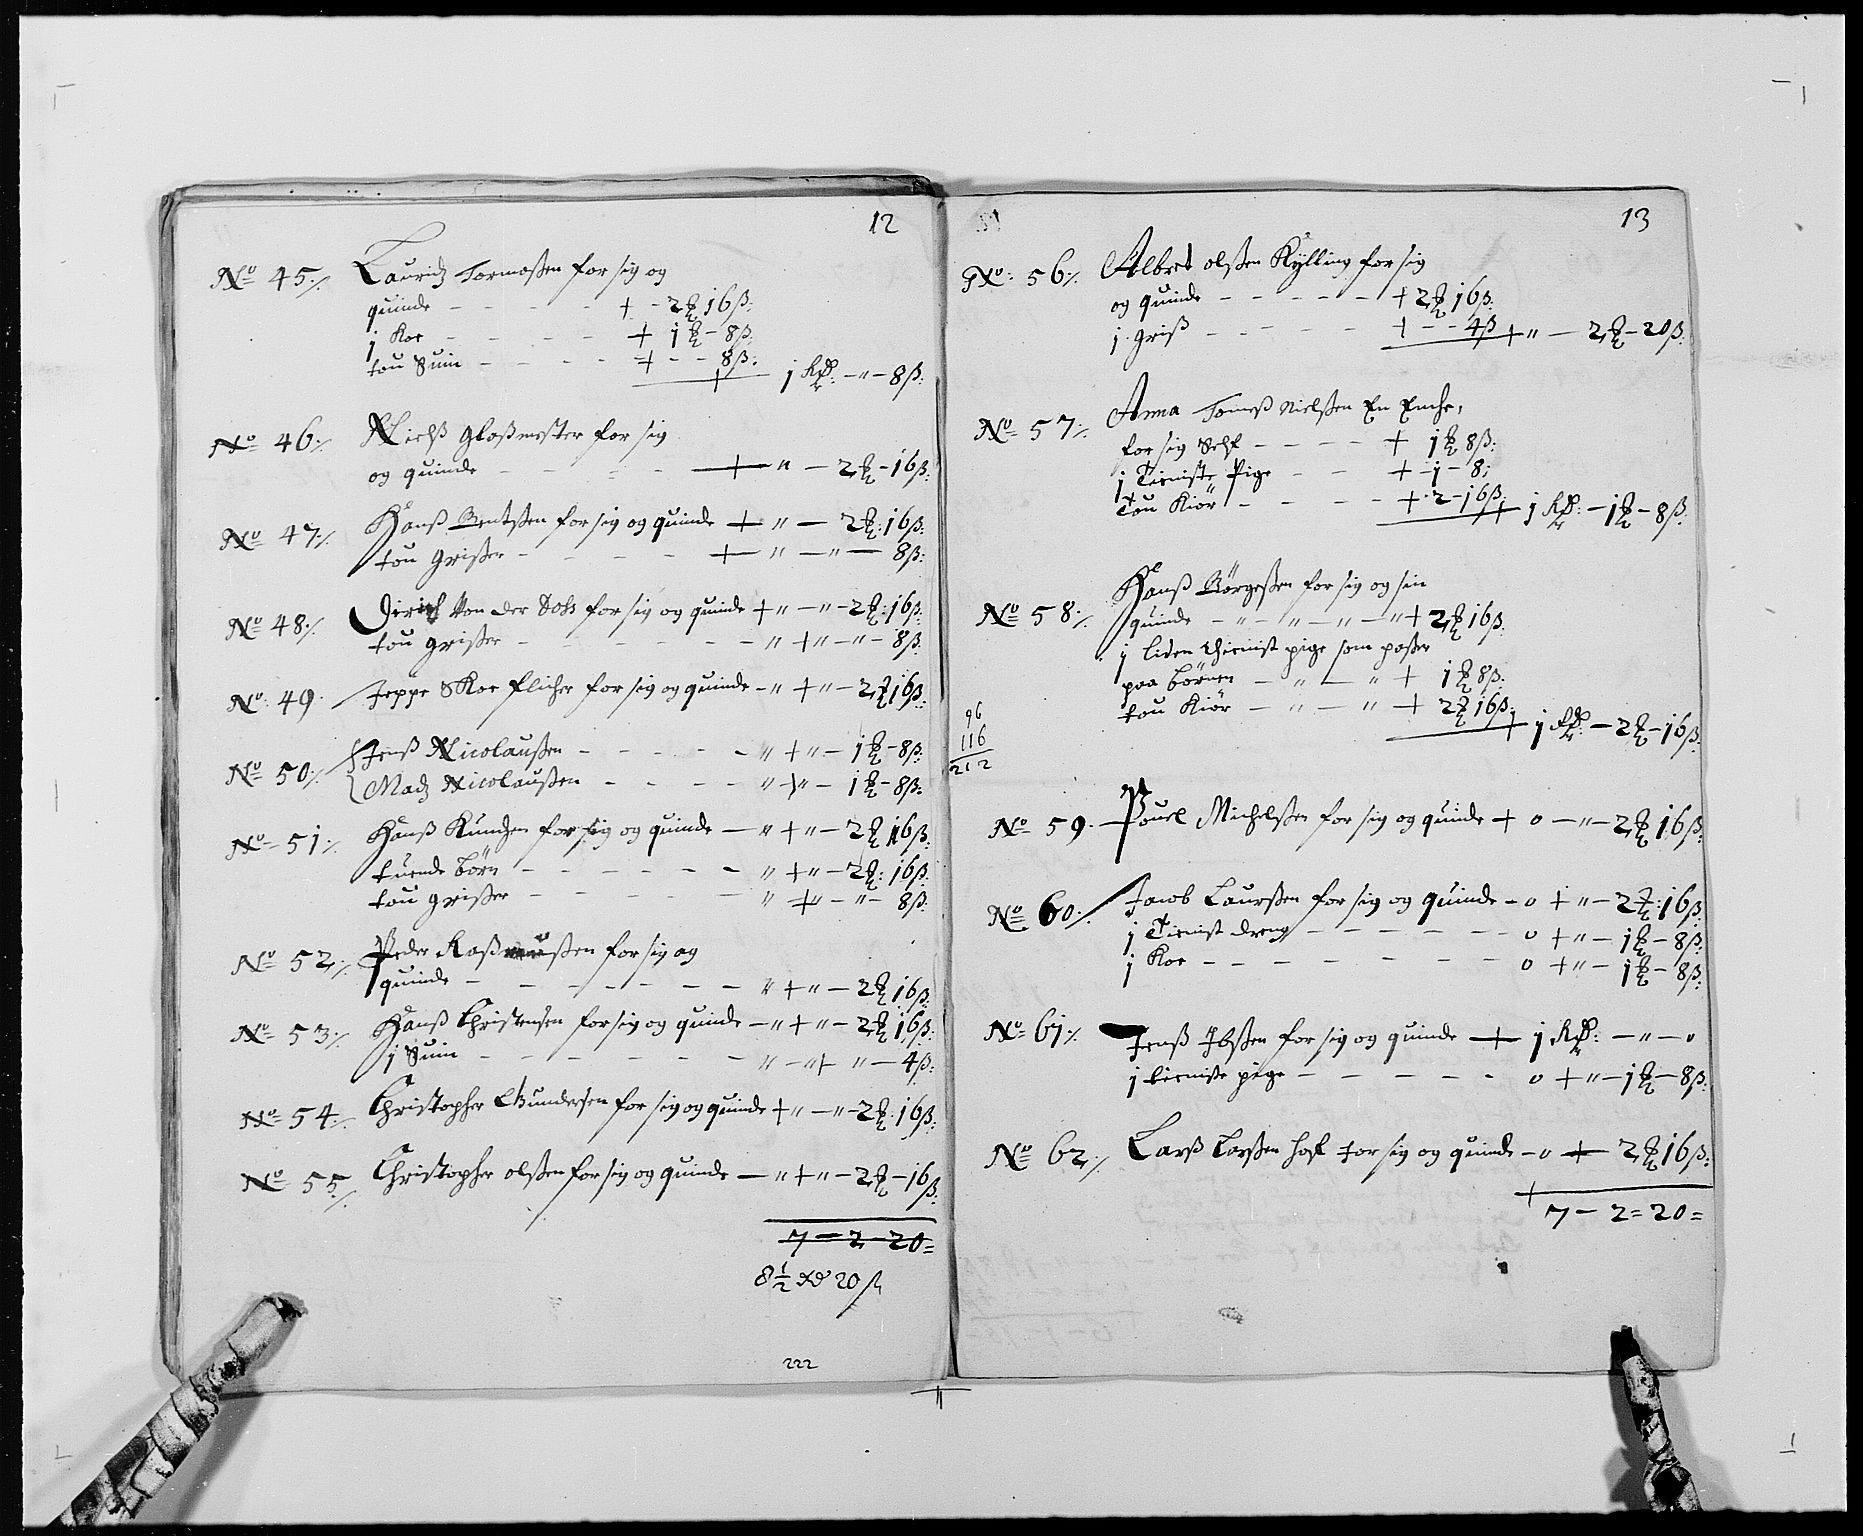 12
No 45 Lauridz Tormoßen for sig og
quinde - - - - + - 2 16 ß
j Koe - - - - + 1 - 8 ß
tou Suin - - - - + - - 8 ß
1 Rdr - " - 8 ß
No 46 Nielß Glaßmester for sig
og quinde - - - + " - 2 - 16 ß
No 47 Hanß Bentßen for sig og quinde + " - 2 16 ß
tou Grißer - - - - + " - " - 8 ß
No 48 Dirich Von der for sig og quinde + " - " - 2 16 ß
tou grißer - - - - " + " - " - 8 ß
No 49 Jeppe Skoe flicher for sig og quinde - " + " - 2 16 ß
No 50 Jenß Nicolaußen - - - - " + " - 1 - 8 ß
Madz Nicolaußen - - - - " + " - 1 - 8 ß
No 51 Hanß for sig og quinde - " + " - 2 16 ß
tuende börn - - - - " + " - 2 16 ß
tou grißer - - - - " + " - " - 8 ß
No 52 Peder for sig og
quinde - - - - - - " + " - 2 16 ß
No 53 Hanß Christensen for sig og quinde - " + " - 2 16 ß
j Suin - - - - - " - " + " - 4 ß
No 54 Christopher Gundersen for sig og quinde + " - " - 2 16 ß
No 55 Christopher olßen for sig og quinde - " + " - 2 - 16 ß
7 - 2 - 20 =
8 1/2 20 ß
222
13
No 56 Albret olßen Kylling for sig
og quinde - - - - - + 2 16 ß
j griß - - - - + - - 4 ß + " - 2 - 20 ß
No 57 Anna Tomeß Nielßen En Encke,
for sig Self - - - - + 1 8 ß
j Tieniste Pige - - + - 1 - 8
Tou Kiör - - - - + 2 - 16 ß + 1 Rdr - 1 - 8 ß
Hanß Börgeßen for sig og sin
No 58 quinde - " - " - " - " + 2 16 ß
j liden thienist pige som paßer
paa börnen - " - " + 1 8 ß
tou Kiör - " - " + 2 16 ß
+ 1 Rdr - 2 - 16 ß
96
116
212
No 59 Pouel Michelßen for sig og quinde + o - " - 2 16 ß
No 60 Jacob Laurßen for sig og quinde - o + " - 2 16 ß
j Tienist dreng - - - - - o + " - 1 - 8 ß
j Koe - - - - - - o + " - 1 - 8 ß
No 61 Jenß Ibßen for sig og quinde + 1 Rdr - " - o
j tieniste pige - - - - o + " - 1 - 8 ß
No 62 Larß Larßen for sig og quinde - o + 2 16 ß
+
7 - 2 = 20 =